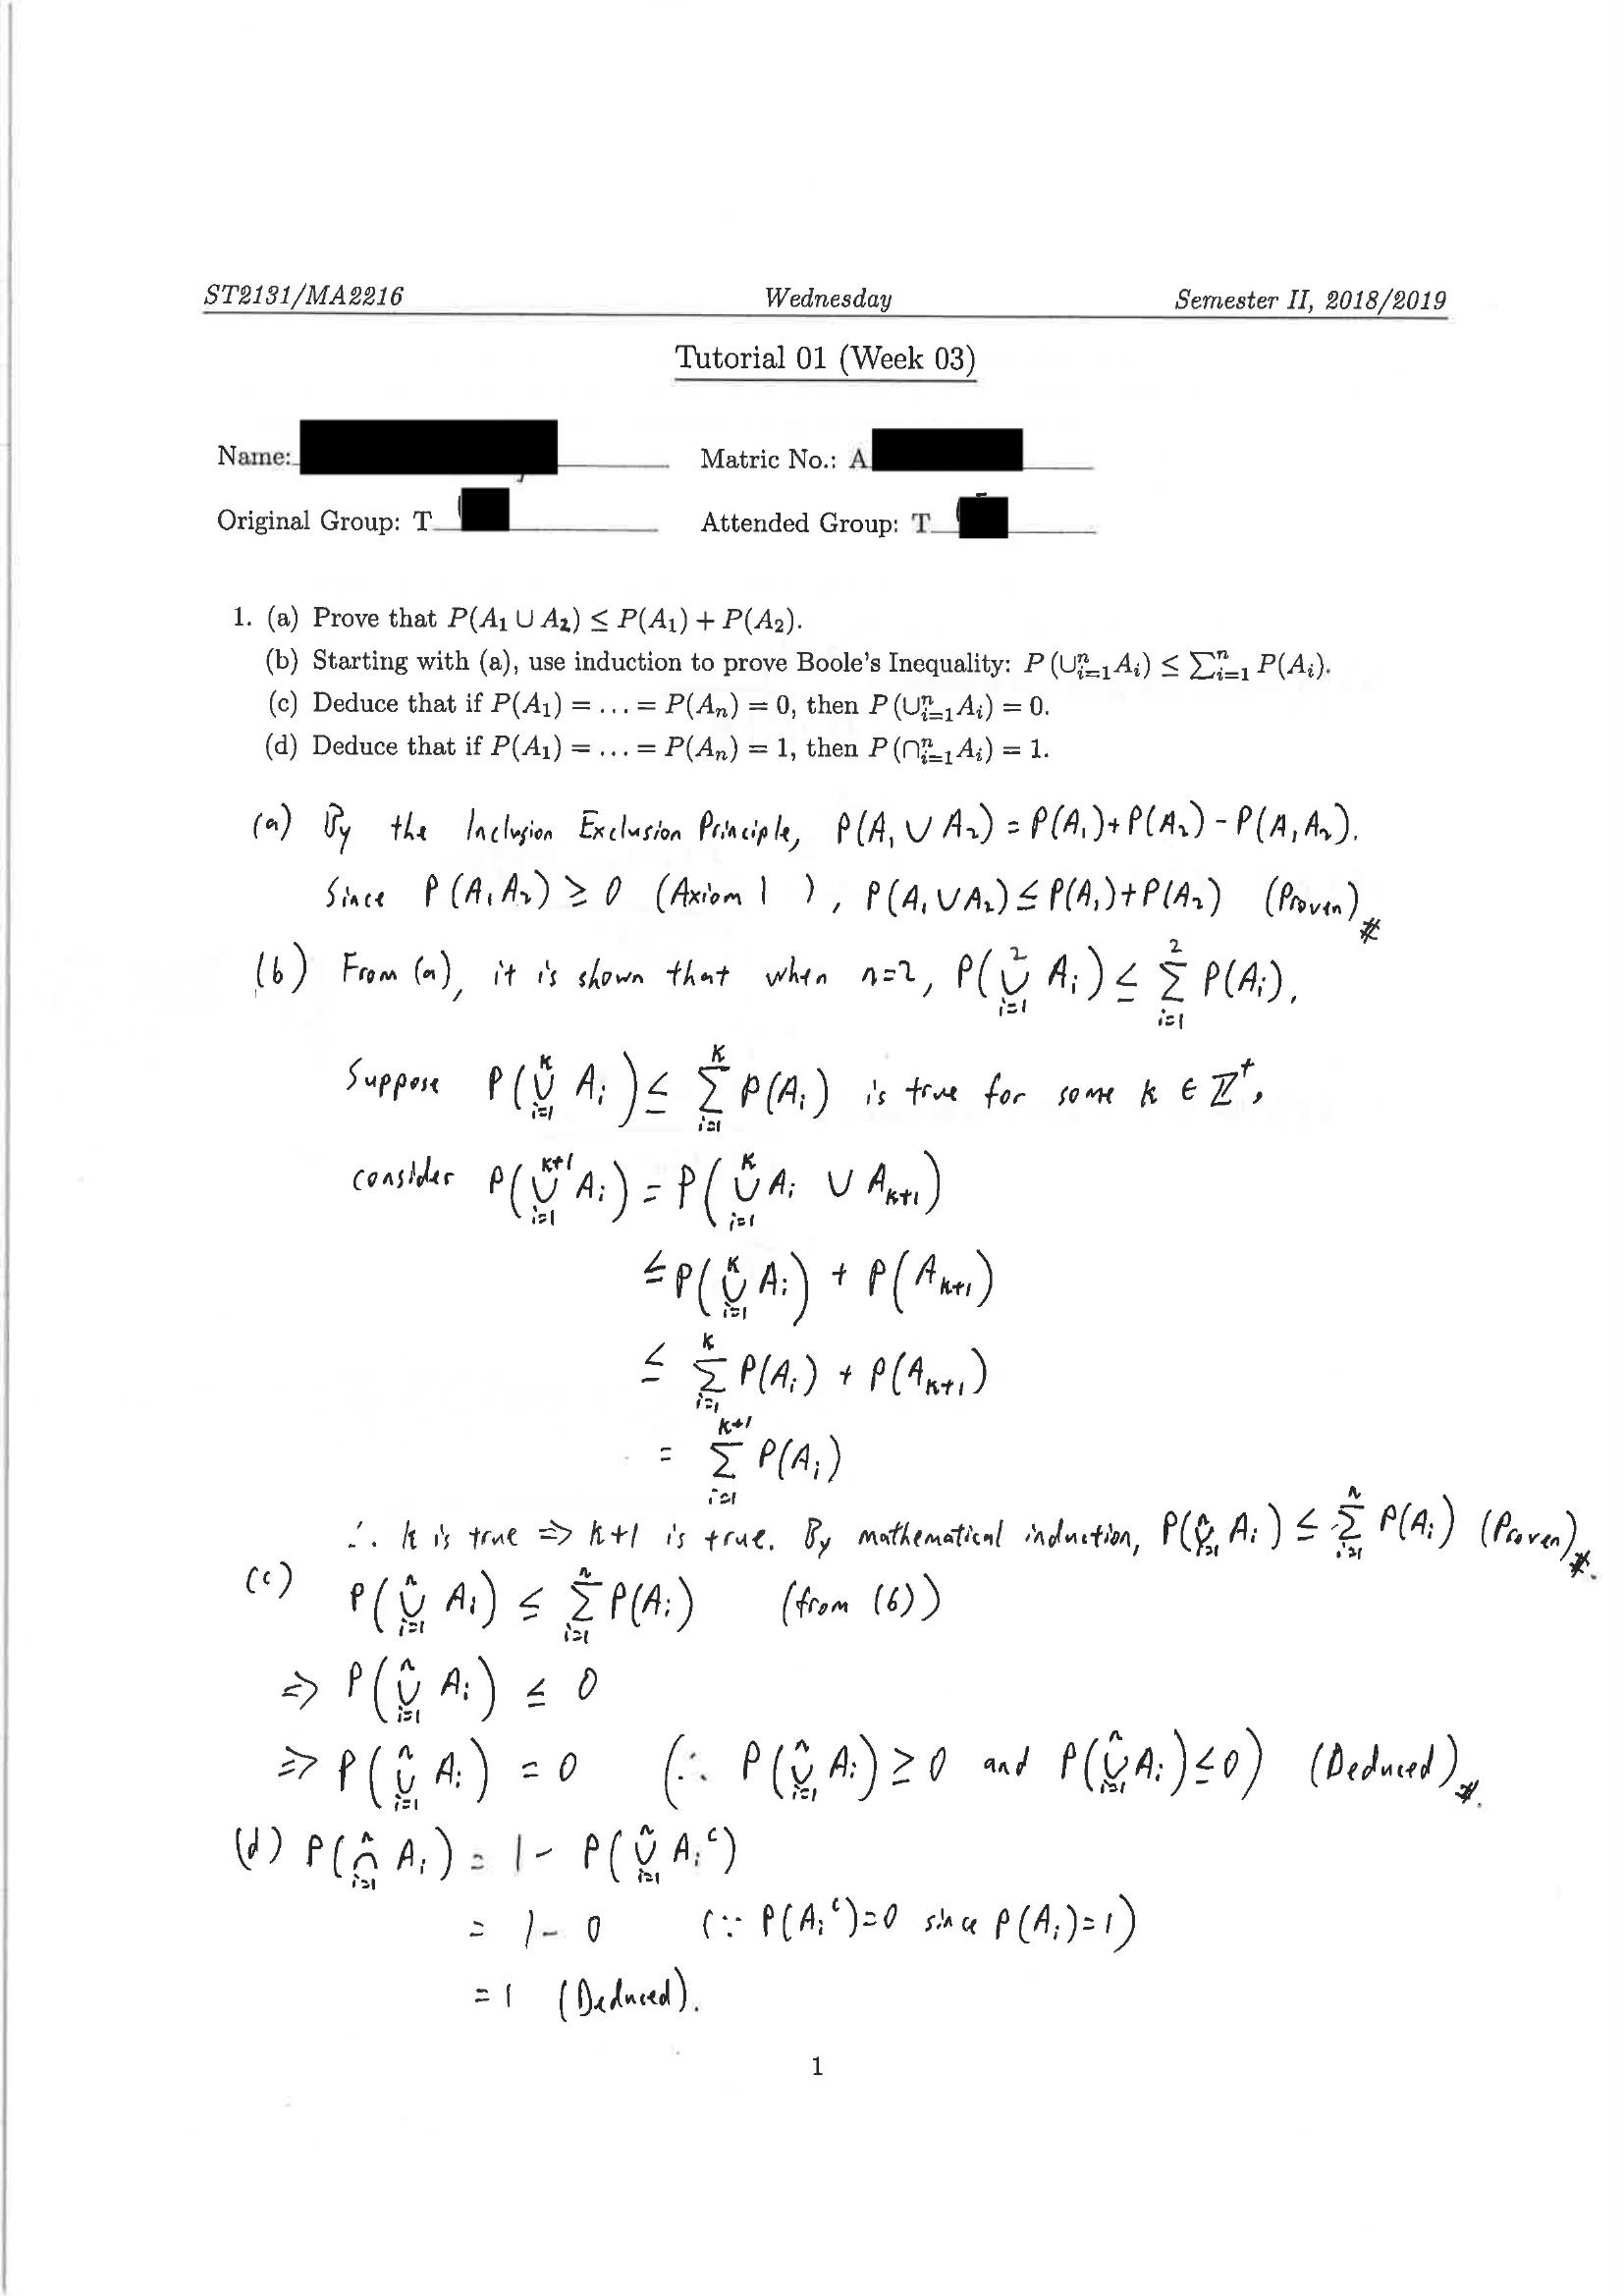 ST2131/MA2216 Wednesday Semester II, 2018/2019
Tutorial 01 (Week 03)
Name: Matric No.: A
Original Group: T Attended Group: T
1. (a) Prove that P(A₁ ∪ A₂) ≤ P(A₁) + P(A₂).
(b) Starting with (a), use induction to prove Boole's Inequality: P(∪ⁿᵢ₌₁Aᵢ) ≤ ∑ⁿᵢ₌₁ P(Aᵢ).
(c) Deduce that if P(A₁) = ... = P(Aₙ) = 0, then P(∪ⁿᵢ₌₁Aᵢ) = 0.
(d) Deduce that if P(A₁) = ... = P(Aₙ) = 1, then P(∩ⁿᵢ₌₁Aᵢ) = 1.
(a) By the Inclusion Exclusion Principle, P(A₁ ∪ A₂) = P(A₁)+P(A₂) - P(A₁A₂).
Since P(A₁A₂) ≥ 0 (Axiom 1 ), P(A₁ ∪ A₂) ≤ P(A₁)+P(A₂) (Proven) #
(b) From (a), it is shown that when n=2, P(∪²ᵢ₌₁ Aᵢ) ≤ ∑²ᵢ₌₁ P(Aᵢ).
Suppose P(∪ᵏᵢ₌₁ Aᵢ) ≤ ∑ᵏᵢ₌₁ P(Aᵢ) is true for some k ∈ ℤ⁺,
consider P(∪ᵏ⁺¹ᵢ₌₁ Aᵢ) = P(∪ᵏᵢ₌₁ Aᵢ ∪ Aₖ₊₁)
≤ P(∪ᵏᵢ₌₁ Aᵢ) + P(Aₖ₊₁)
≤ ∑ᵏᵢ₌₁ P(Aᵢ) + P(Aₖ₊₁)
= ∑ᵏ⁺¹ᵢ₌₁ P(Aᵢ)
∴ k is true ⇒ k+1 is true. By mathematical induction, P(∪ⁿᵢ₌₁ Aᵢ) ≤ ∑ⁿᵢ₌₁ P(Aᵢ) (Proven) #.
(c) P(∪ⁿᵢ₌₁ Aᵢ) ≤ ∑ⁿᵢ₌₁ P(Aᵢ) (from (b))
⇒ P(∪ⁿᵢ₌₁ Aᵢ) ≤ 0
⇒ P(∪ⁿᵢ₌₁ Aᵢ) = 0 (∵ P(∪ⁿᵢ₌₁ Aᵢ) ≥ 0 and P(∪ⁿᵢ₌₁ Aᵢ) ≤ 0) (Deduced) #.
(d) P(∩ⁿᵢ₌₁ Aᵢ) = 1 - P(∪ⁿᵢ₌₁ Aᵢᶜ)
= 1 - 0 (∵ P(Aᵢᶜ)=0 since P(Aᵢ)=1)
= 1 (Deduced).
1